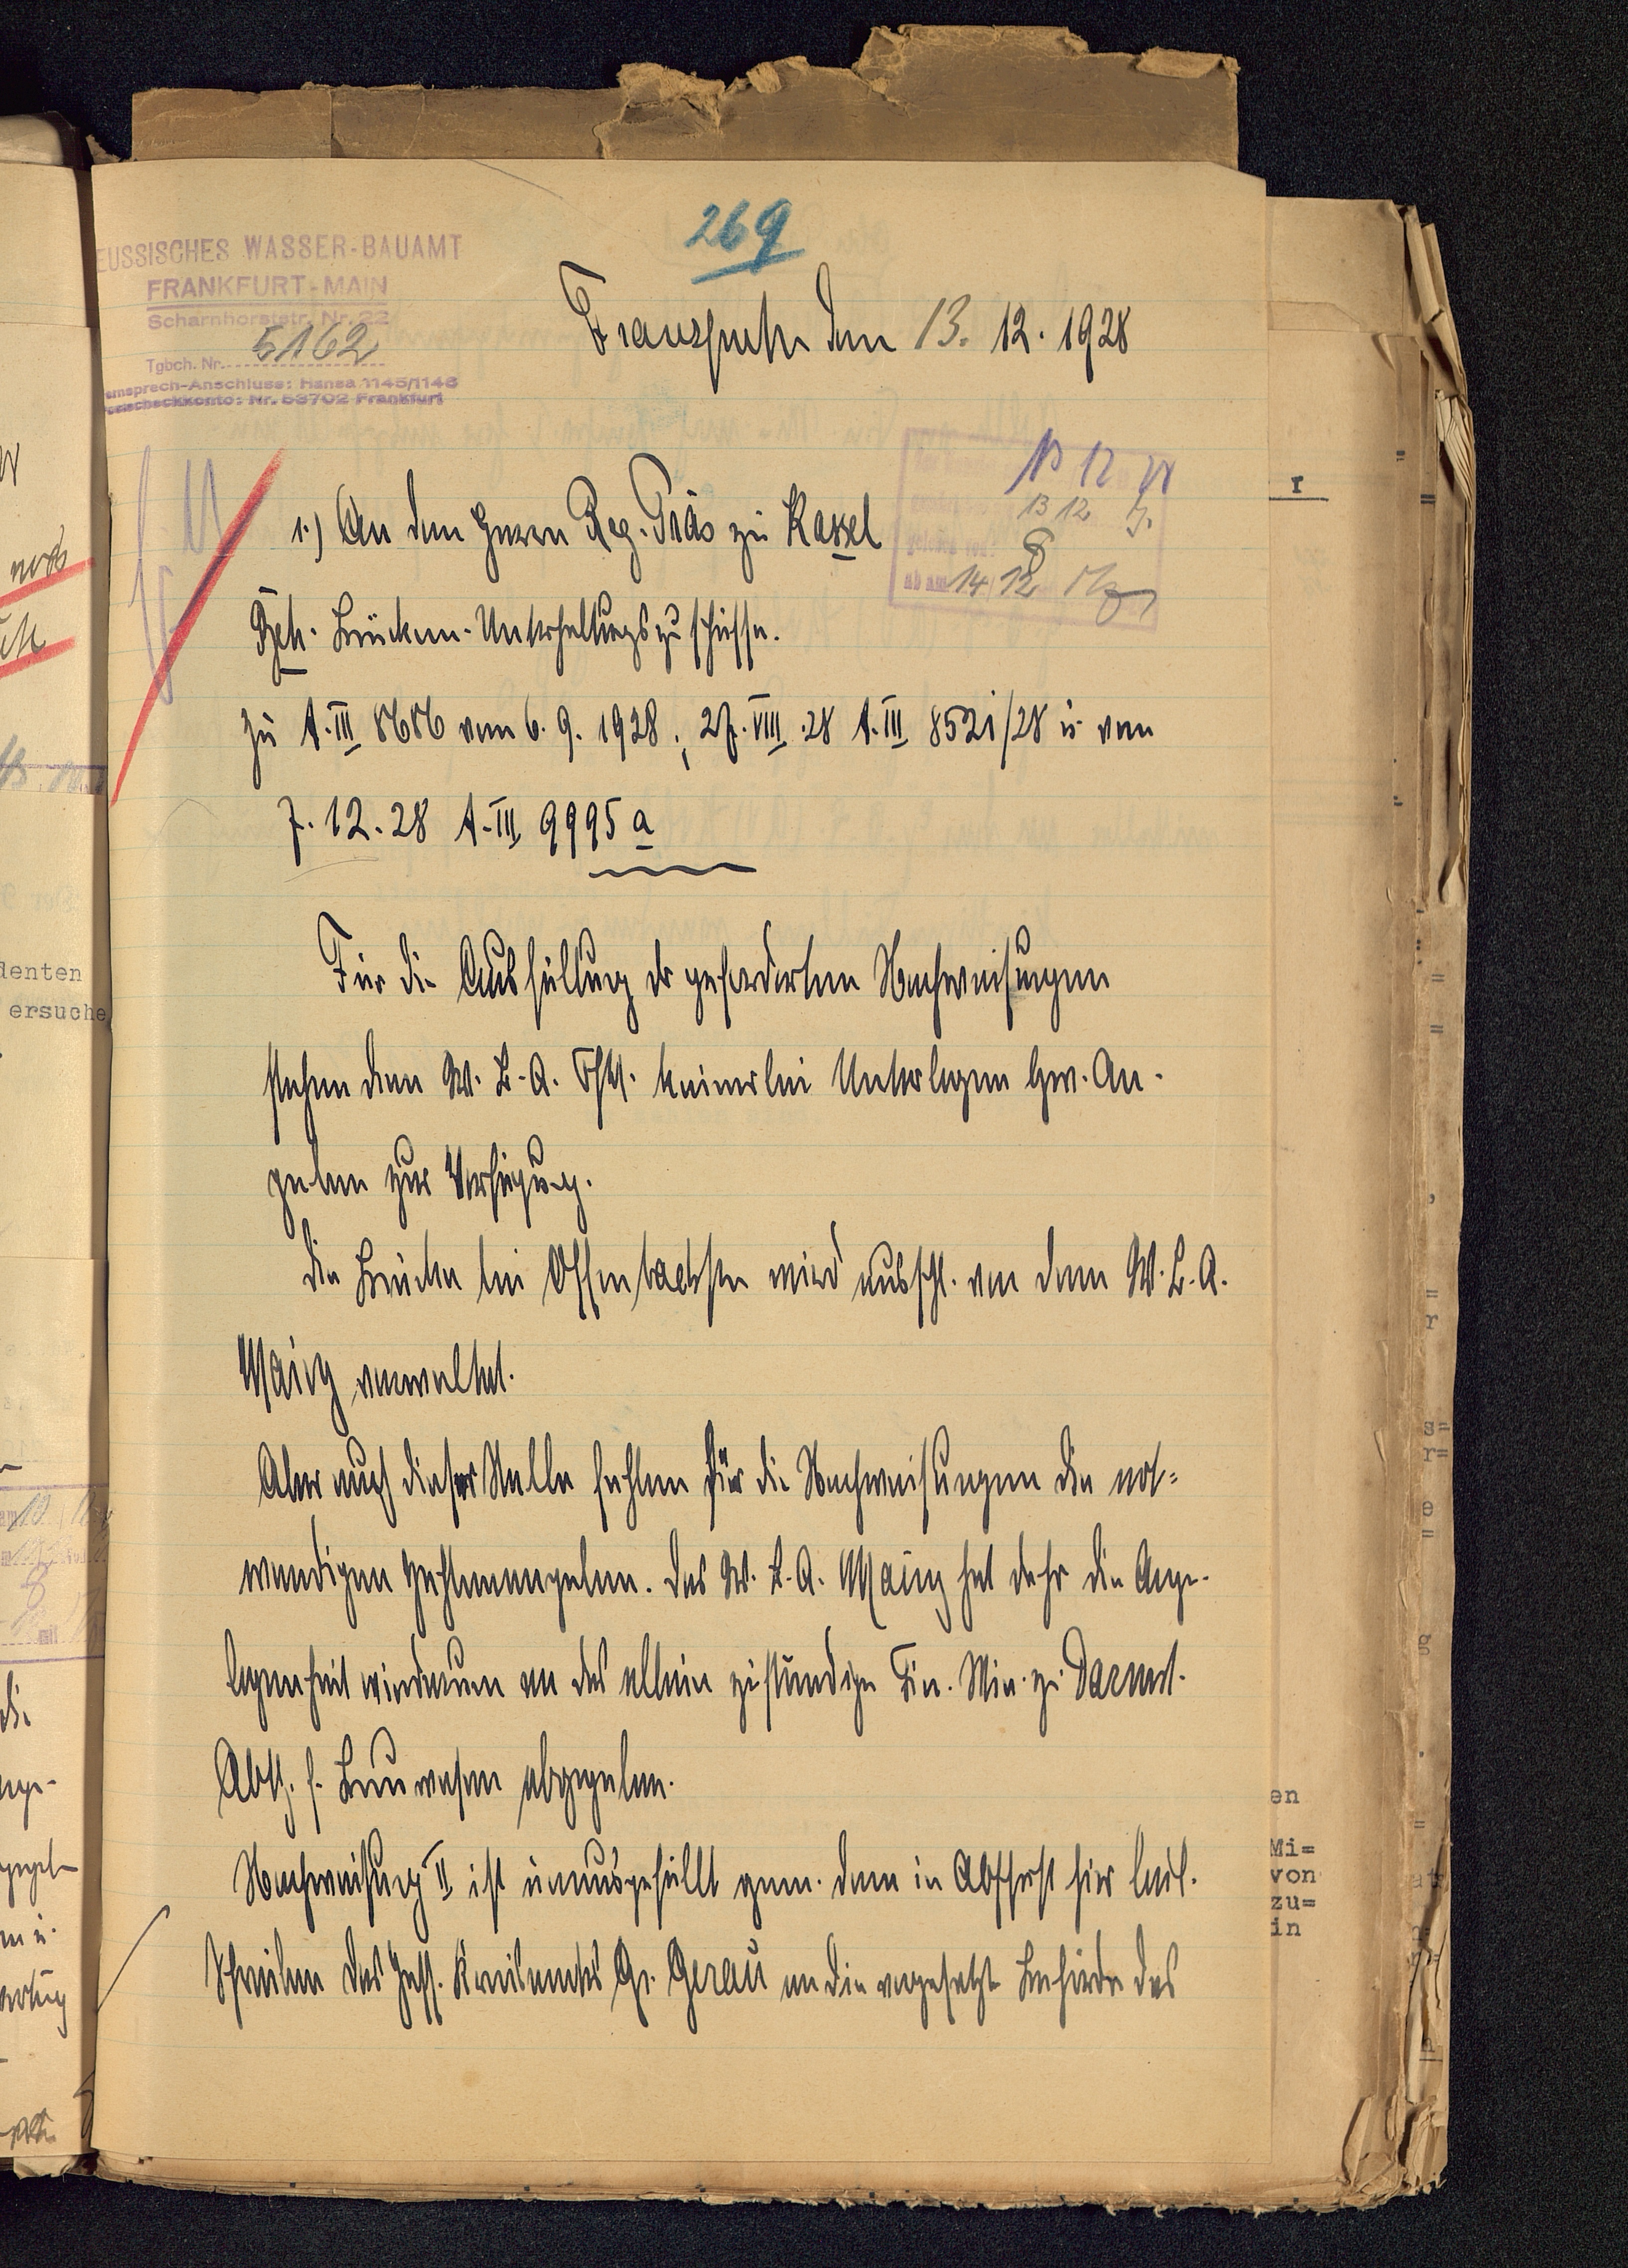 269
EUSSISCHES WASSER-BAUAMT
FRANKFURT-MAIN
Scharnhorststr. Nr. 22
Tgbch. Nr. 5162
ernsprech-Anschluss: Hansa 1145/1146
Postscheckkonto: Nr. 53702 Frankfurt
den 13. 12. 1928
13 12
ab am 14/12
1.) An den Herrn Reg. Präs zu Kassel
Betr. Brücken-Unterhaltungszuschüsse.
zu A.III 8686 vom 6. 9. 1928; 27.VIII.28 A.III 8521/28 u. vom
7. 12. 28 A.III 9995 a
Für die Ausfüllung der geforderten Nachweisungen
stehen dem W. B. A. Ffm. keinerlei Unterlagen bzw. An-
gaben zur Verfügung.
Die Brücke bei Offenbach wird ausschl. von dem W. B. A.
Mainz verwaltet.
Aber auch dieser Stelle fehlen für die Nachweisungen die not=
wendigen Zahlenangaben. Das W. B. A. Mainz hat daher die Ange-
legenheit wiederum an das allein zuständige Fin. Min. zu Darmst.
Abtg. f. Bauwesen abgegeben.
Nachweisung II ist unausgefüllt gem. dem in Abschrift hier beil.
Schreiben des Hess. Kreisamts Gr. Gerau an die vorgesetzte Behörde des
denten
ersuche
r
en
Mi=
von
zu=
in